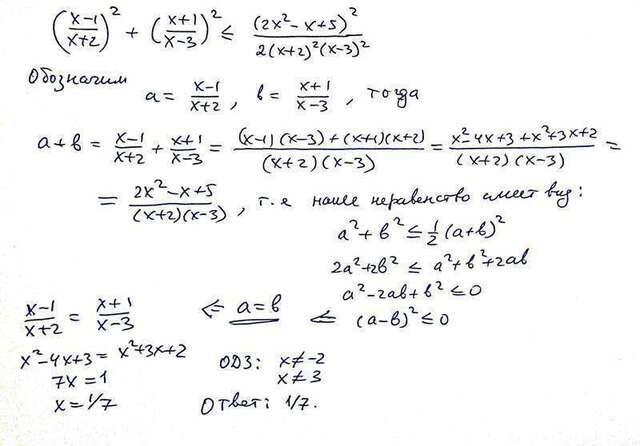 ((x-1)/(x+2))² + ((x+1)/(x-3))² ≤ (2x² - x+5)²/(2(x+2)²(x-3)²)
Обозначим
a = (x-1)/(x+2), в = (x+1)/(x-3), тогда
a+в = (x-1)/(x+2) + (x+1)/(x-3) = ((x-1)(x-3)+(x+1)(x+2))/((x+2)(x-3)) = (x²-4x+3+x²+3x+2)/((x+2)(x-3)) =
= (2x²-x+5)/((x+2)(x-3)), т.е наше неравенство имеет вид:
a²+в² ≤ 1/2 (a+в)²
2a²+2в² ≤ a²+в²+2aв
a²-2aв+в² ≤ 0
(x-1)/(x+2) = (x+1)/(x-3) ⇐ a=в ⇐ (a-в)² ≤ 0
x²-4x+3 = x²+3x+2 ОДЗ: x≠-2
7x=1 x≠3
x=1/7 Ответ: 1/7.